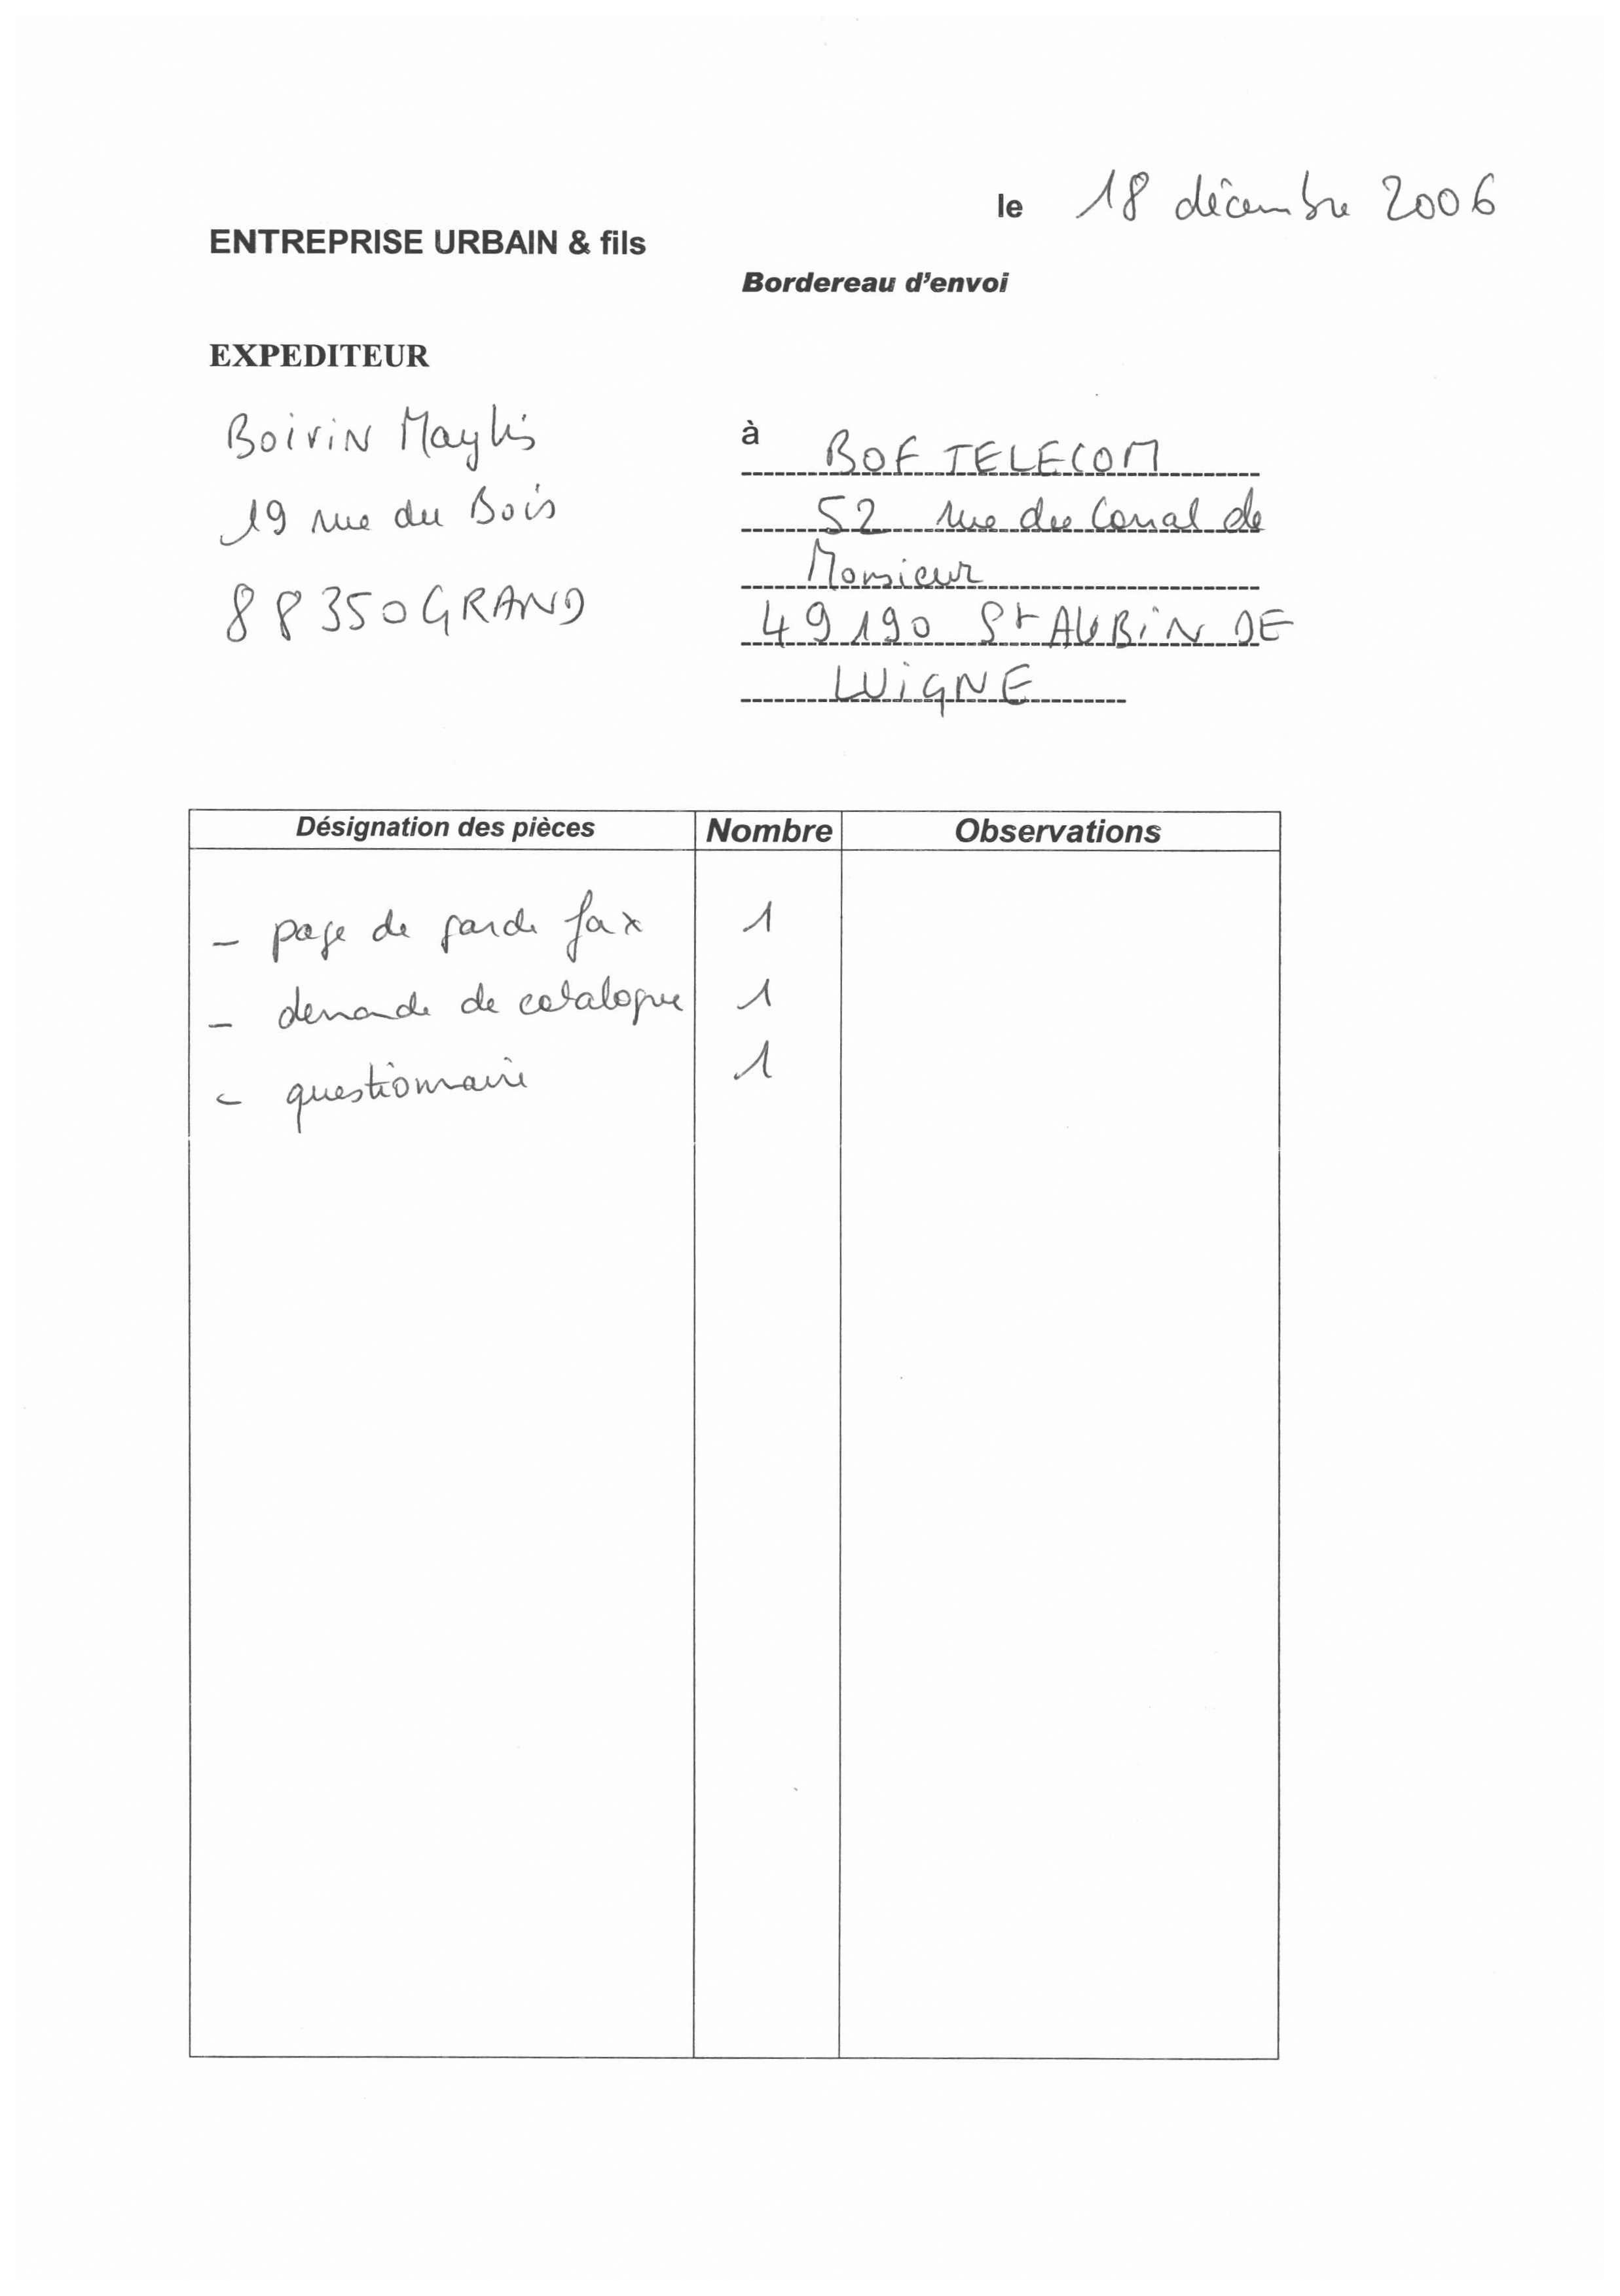 le 18 décembre 2006
ENTREPRISE URBAIN & fils
Bordereau d'envoi
EXPEDITEUR
Boivin Maylis
19 rue du Bois
88350 GRAND
à BOF TELECOM
52 rue du Canal de
Monsieur
49190 St AUBIN DE
LUIGNE
Désignation des pièces Nombre Observations
- page de garde fax 1
- demande de catalogue 1
- questionnaire 1